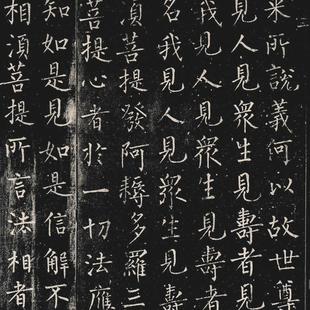 来所說義何以故世尊
見人見衆生見壽者見
我見人見衆生見壽者
名我見人見衆生見壽
須菩提發阿耨多羅三
菩提心者於一切法應
知如是見如是信解不
相須菩提所言法相者